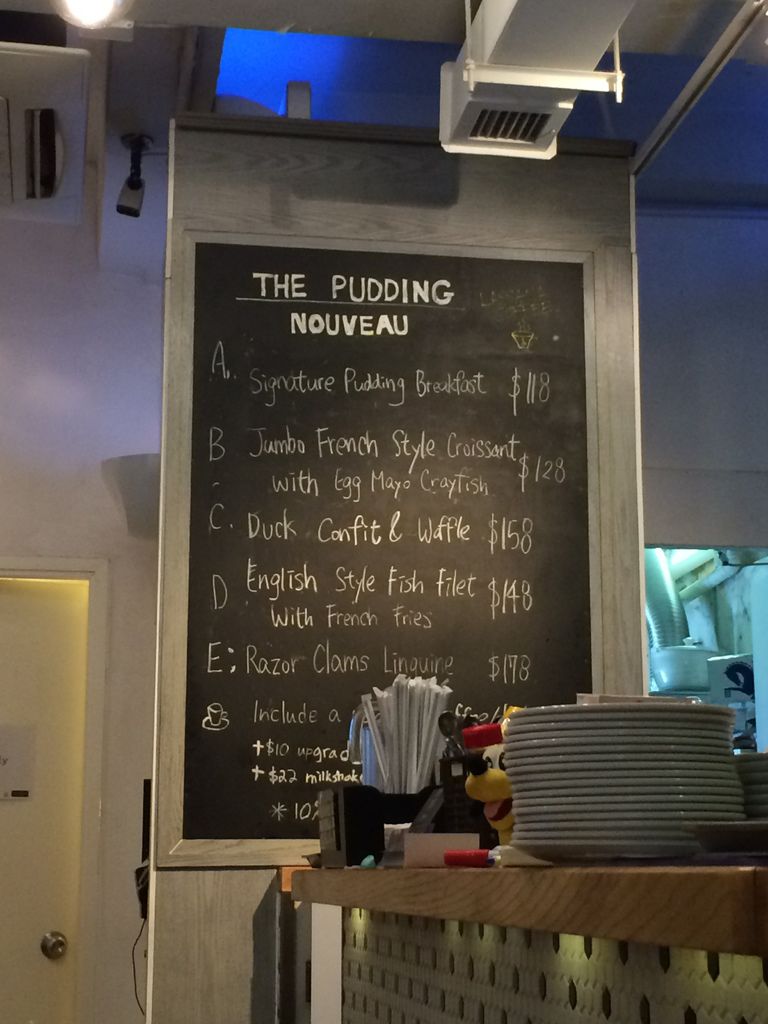 THE PUDDING
NOUVEAU
A. Signature Pudding Breakfast $118
B Jumbo French Style Croissant
with Egg Mayo Crayfish $128
C. Duck Confit & Waffle $158
D English Style Fish Filet
With French Fries $148
E: Razor Clams Linguine $178
Include a
+$10 upgrad
+ $22 milkshak
* 10%